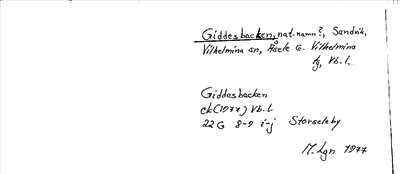 Giddesbacken, nat.namn?, Sandvik,
Vilhelmina sn, Åsele G. Vilhelmina
tg, Vb. l.
Giddesbacken
ek (1977) Vb. l.
22 G 8-9 i-j Storseleby
M. Lgn 1977